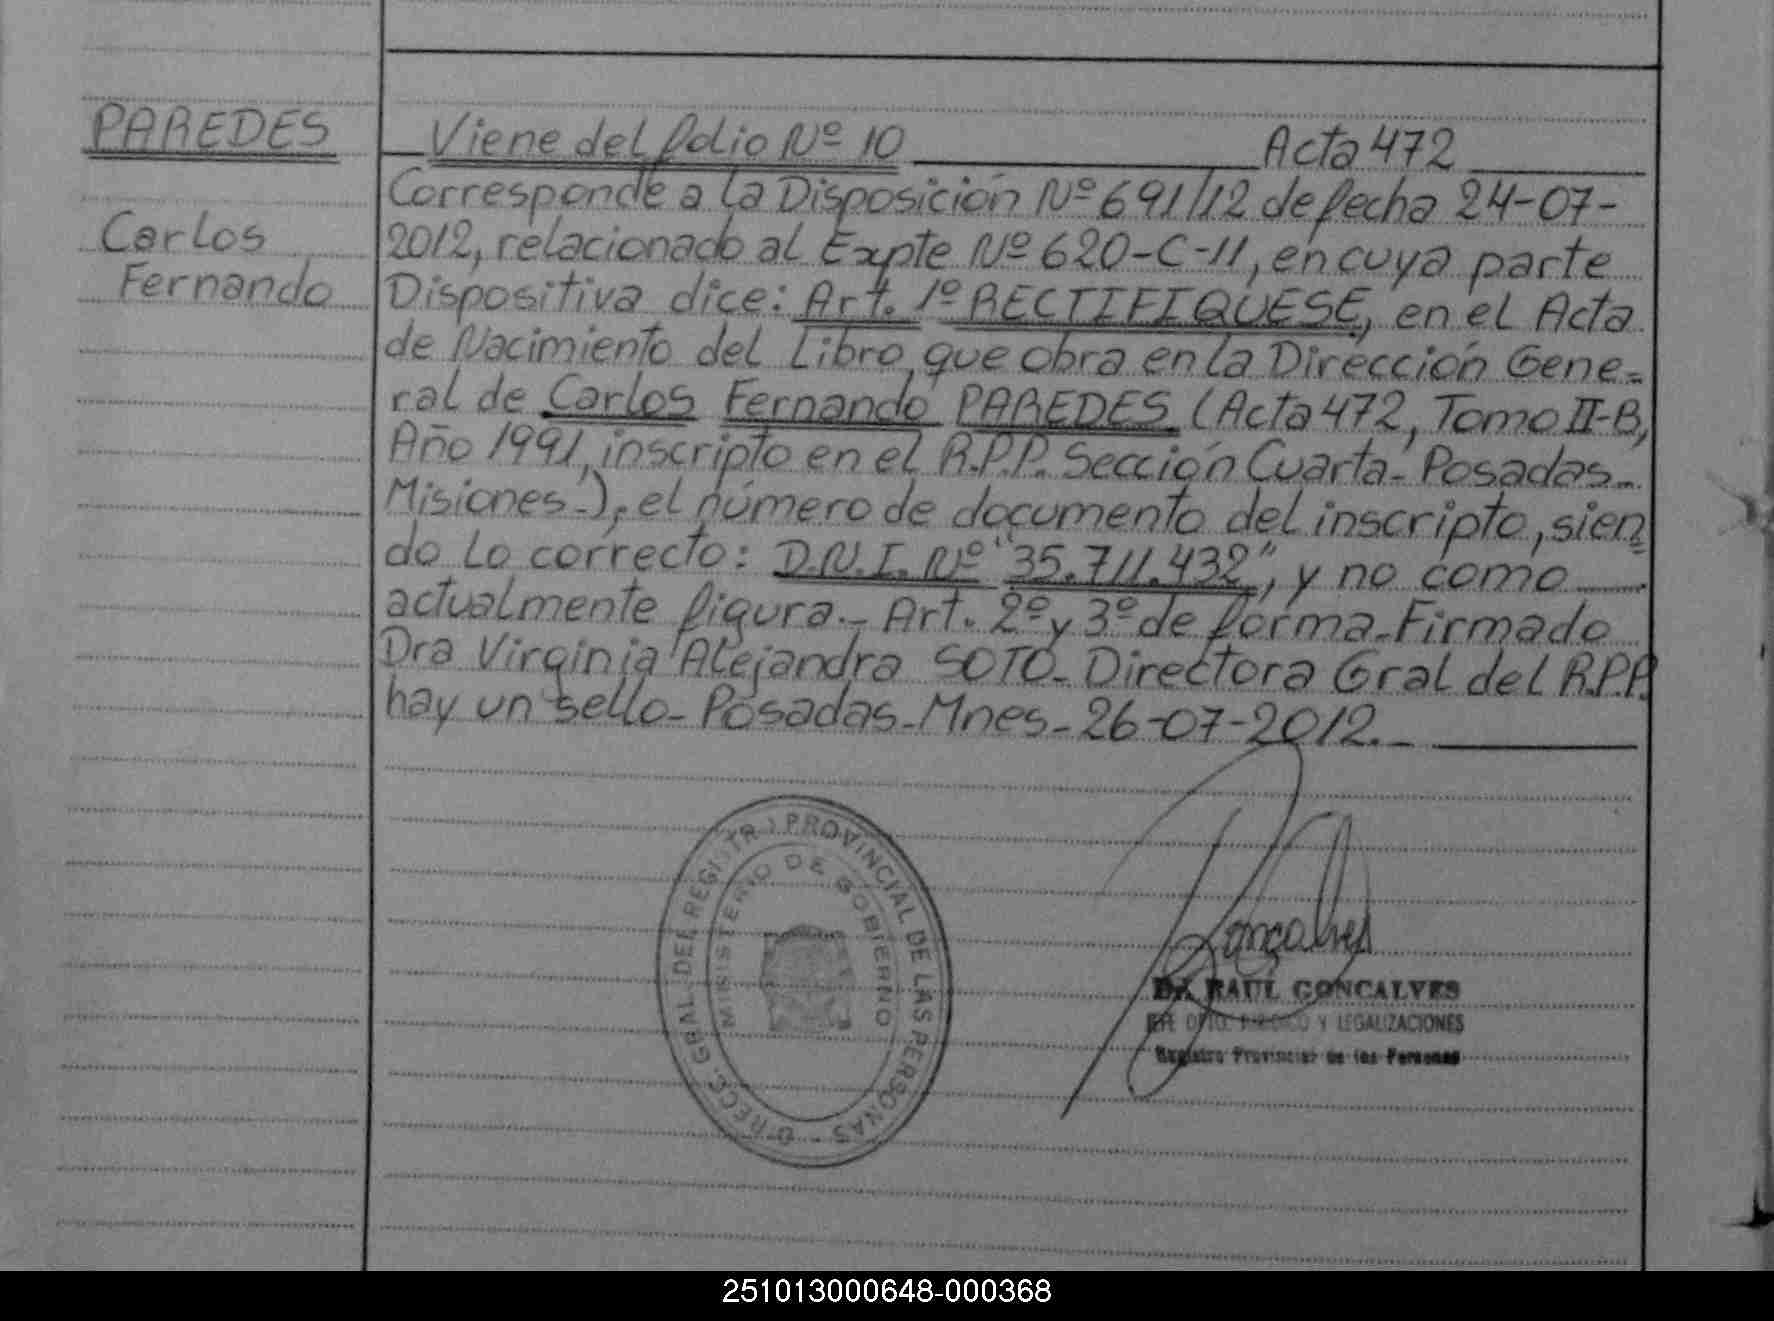 PAREDES
Carlos
Fernando
Viene del folio Nº 10 Acta 472
Corresponde a la Disposición Nº 691/12 de fecha 24-07-
2012, relacionado al Expte Nº 620-C-11, en cuya parte
Dispositiva dice: Art. 1º RECTIFIQUESE, en el Acta
de Nacimiento del Libro, que obra en la Dirección Gene=
ral de Carlos Fernando PAREDES (Acta 472, Tomo II-B,
Año 1991, inscripto en el R.P.P. Sección Cuarta- Posadas-
Misiones-), el número de documento del inscripto, sien
do lo correcto: D.N.I. Nº "35.711.432", y no como
actualmente figura.- Art. 2º y 3º de forma-Firmado
Dra Virginia Alejandra SOTO- Directora Gral del R.P.P.
hay un sello- Posadas-Mnes- 26-07-2012.-
DIRECC. GRAL. DEL REGISTRO PROVINCIAL DE LAS PERSONAS -
MINISTERIO DE GOBIERNO
Gonçalves
RAUL GONCALVES
DPTO. Y LEGALIZACIONES
Registro Provincial de las Personas
251013000648-000368